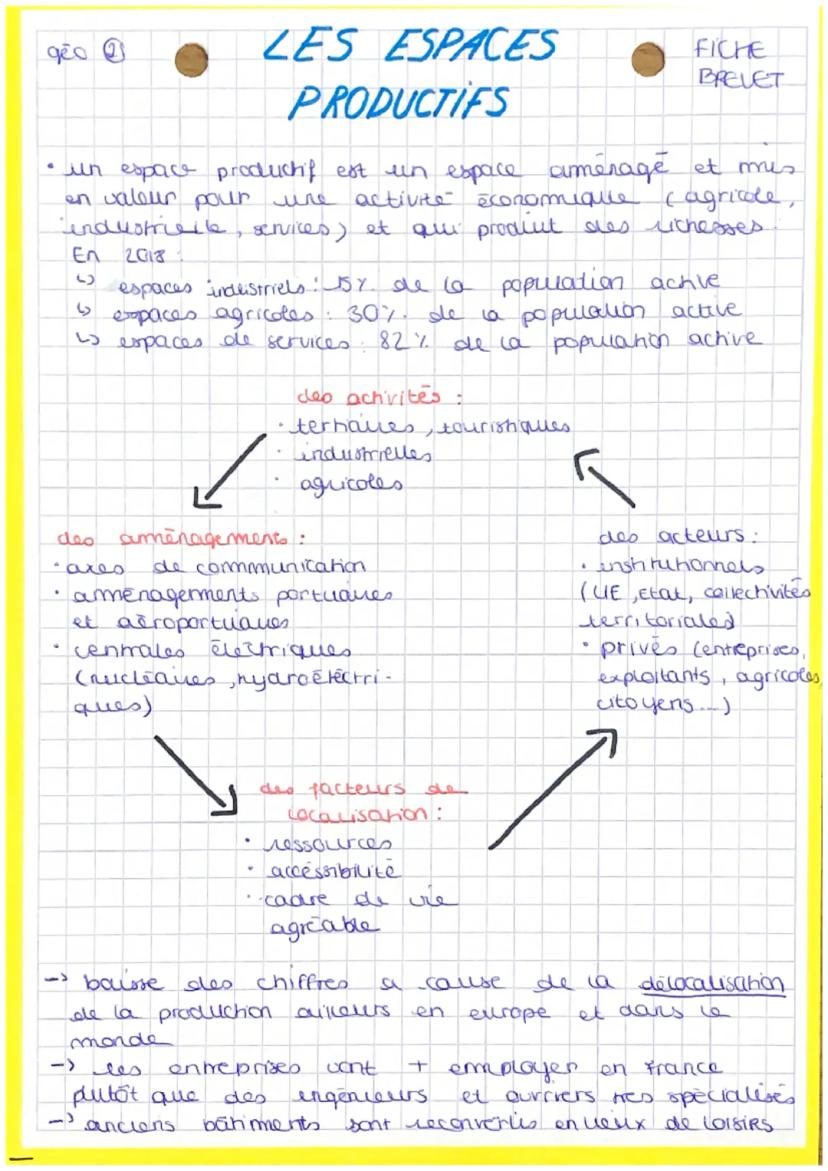 géo ②
LES ESPACES
PRODUCTIFS
FICHE
BREVET
• un espace productif est un espace aménagé et mis
en valeur pour une activité économique (agricole,
industrielle, services) et qui produit des richesses.
En 2018 :
↳ espaces industriels : 15% de la population active
↳ espaces agricoles : 30% de la population active
↳ espaces de services : 82% de la population active
des activités :
• tertiaires, touristiques
• industrielles
• agricoles
des aménagements :
• axes de commmunication
• aménagements portuaires
et aéroportuaires
• centrales électriques
(nucléaires, hydroéléctri-
ques)
des acteurs :
• institutionnels
(UE, Etat, collectivités
territoriales)
• privés (entreprises,
exploitants, agricoles,
citoyens...)
des facteurs de
localisation :
• ressources
• accéssibilité
• cadre de vie
agréable
-> baisse des chiffres a cause de la délocalisation
de la production ailleurs en europe et dans le
monde
-> les entreprises vont + employer en france
plutôt que des ingénieurs et ouvriers très spécialisés
-> anciens bâtiments sont reconvertis en lieux de loisirs